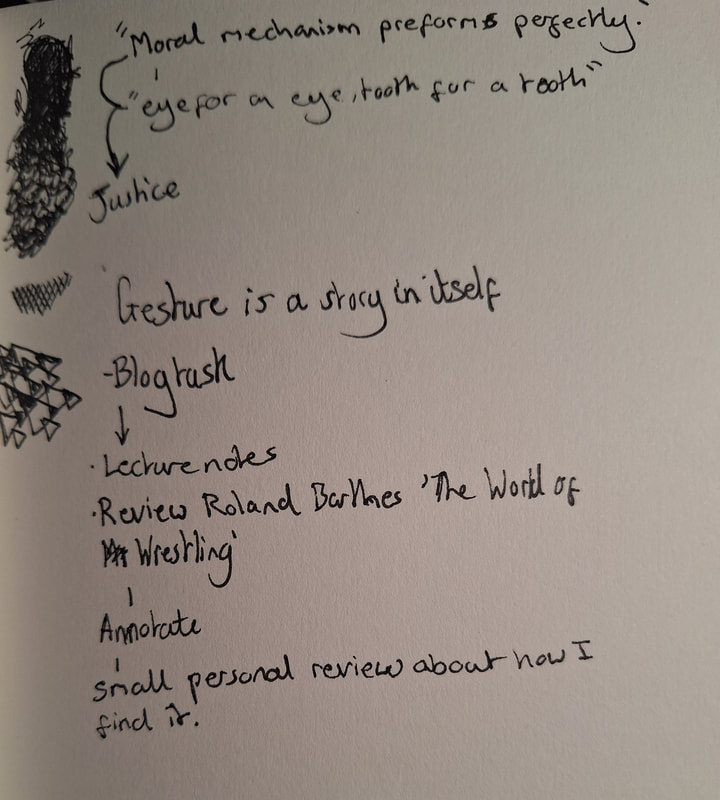 "Moral mechanism preforms perfectly."
"eye for an eye, tooth for a tooth"
Justice
Gesture is a story in itself
-Blog task
· Lecture notes
· Review Roland Barthes 'The World of
Wrestling'
Annotate
small personal review about how I
find it.